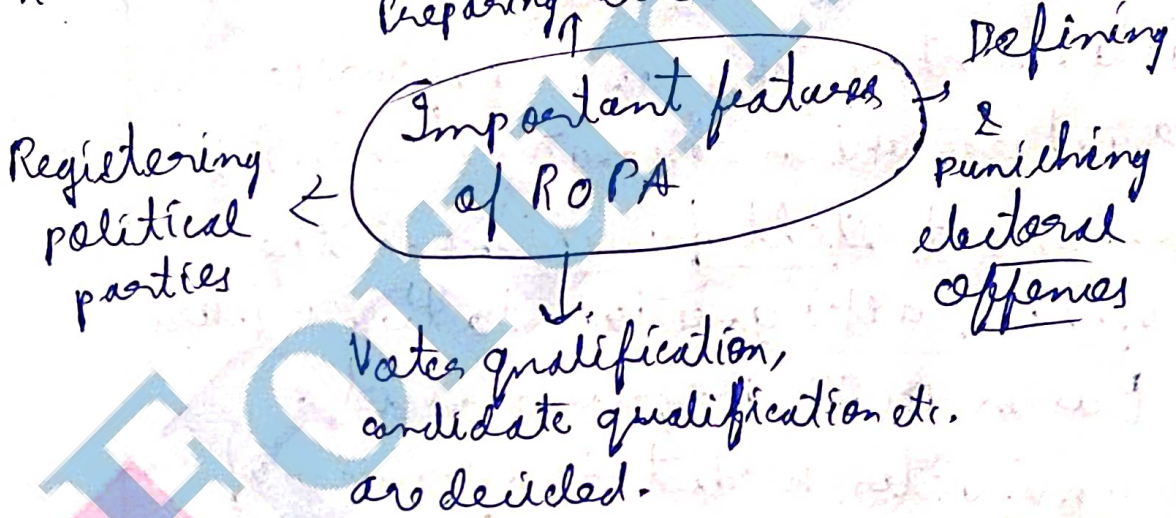 Preparing
Important features
of ROPA.
Defining
&
punishing
electoral
offences
Registering
political
parties
Voter qualification,
candidate qualification etc.
are decided.
Forum